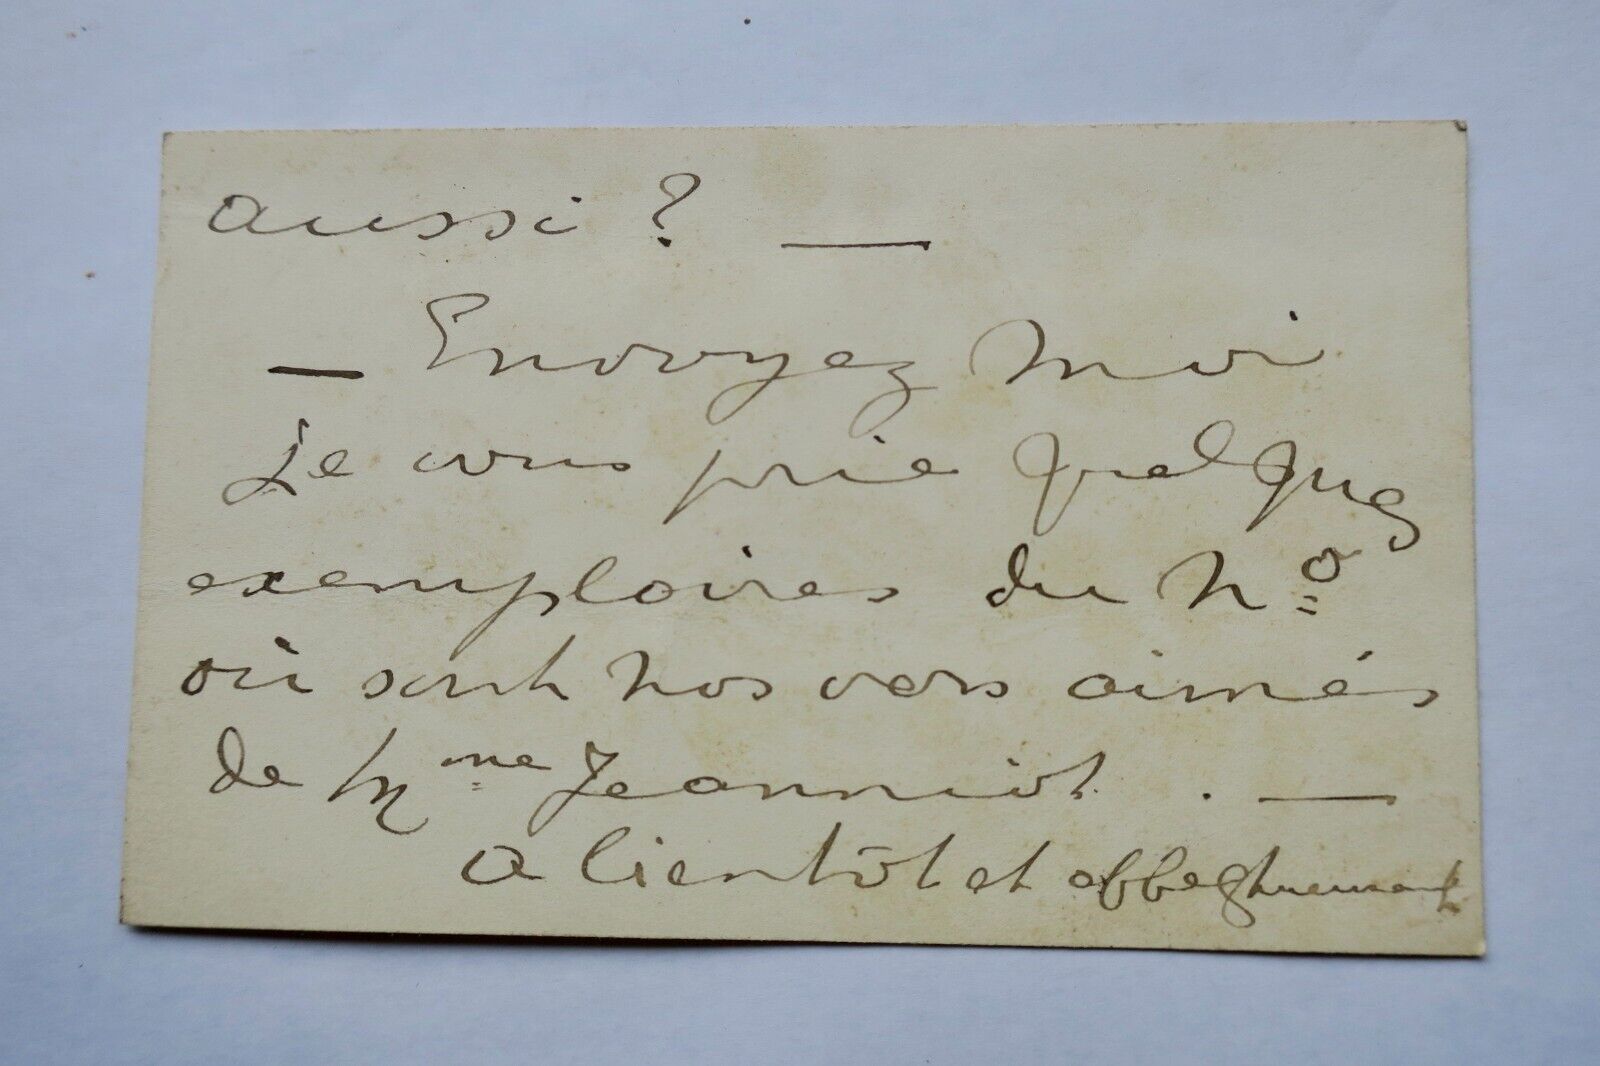 aussi ? —
— Envoyez moi
Je vous prie quelques
exemplaires du Nº
où sont nos vers aimés
de Mme Jeanniot. —
a bientôt et affectueusement